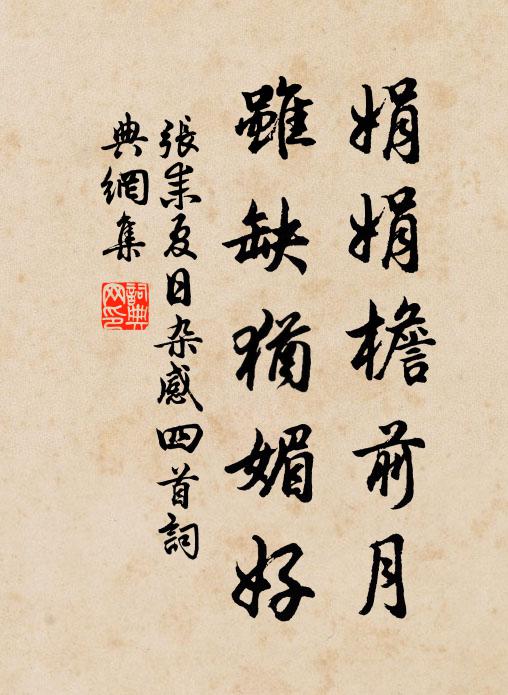 娟娟檐前月
雖缺猶媚好
張耒夏日杂感四首詞
典網集
詞典網印